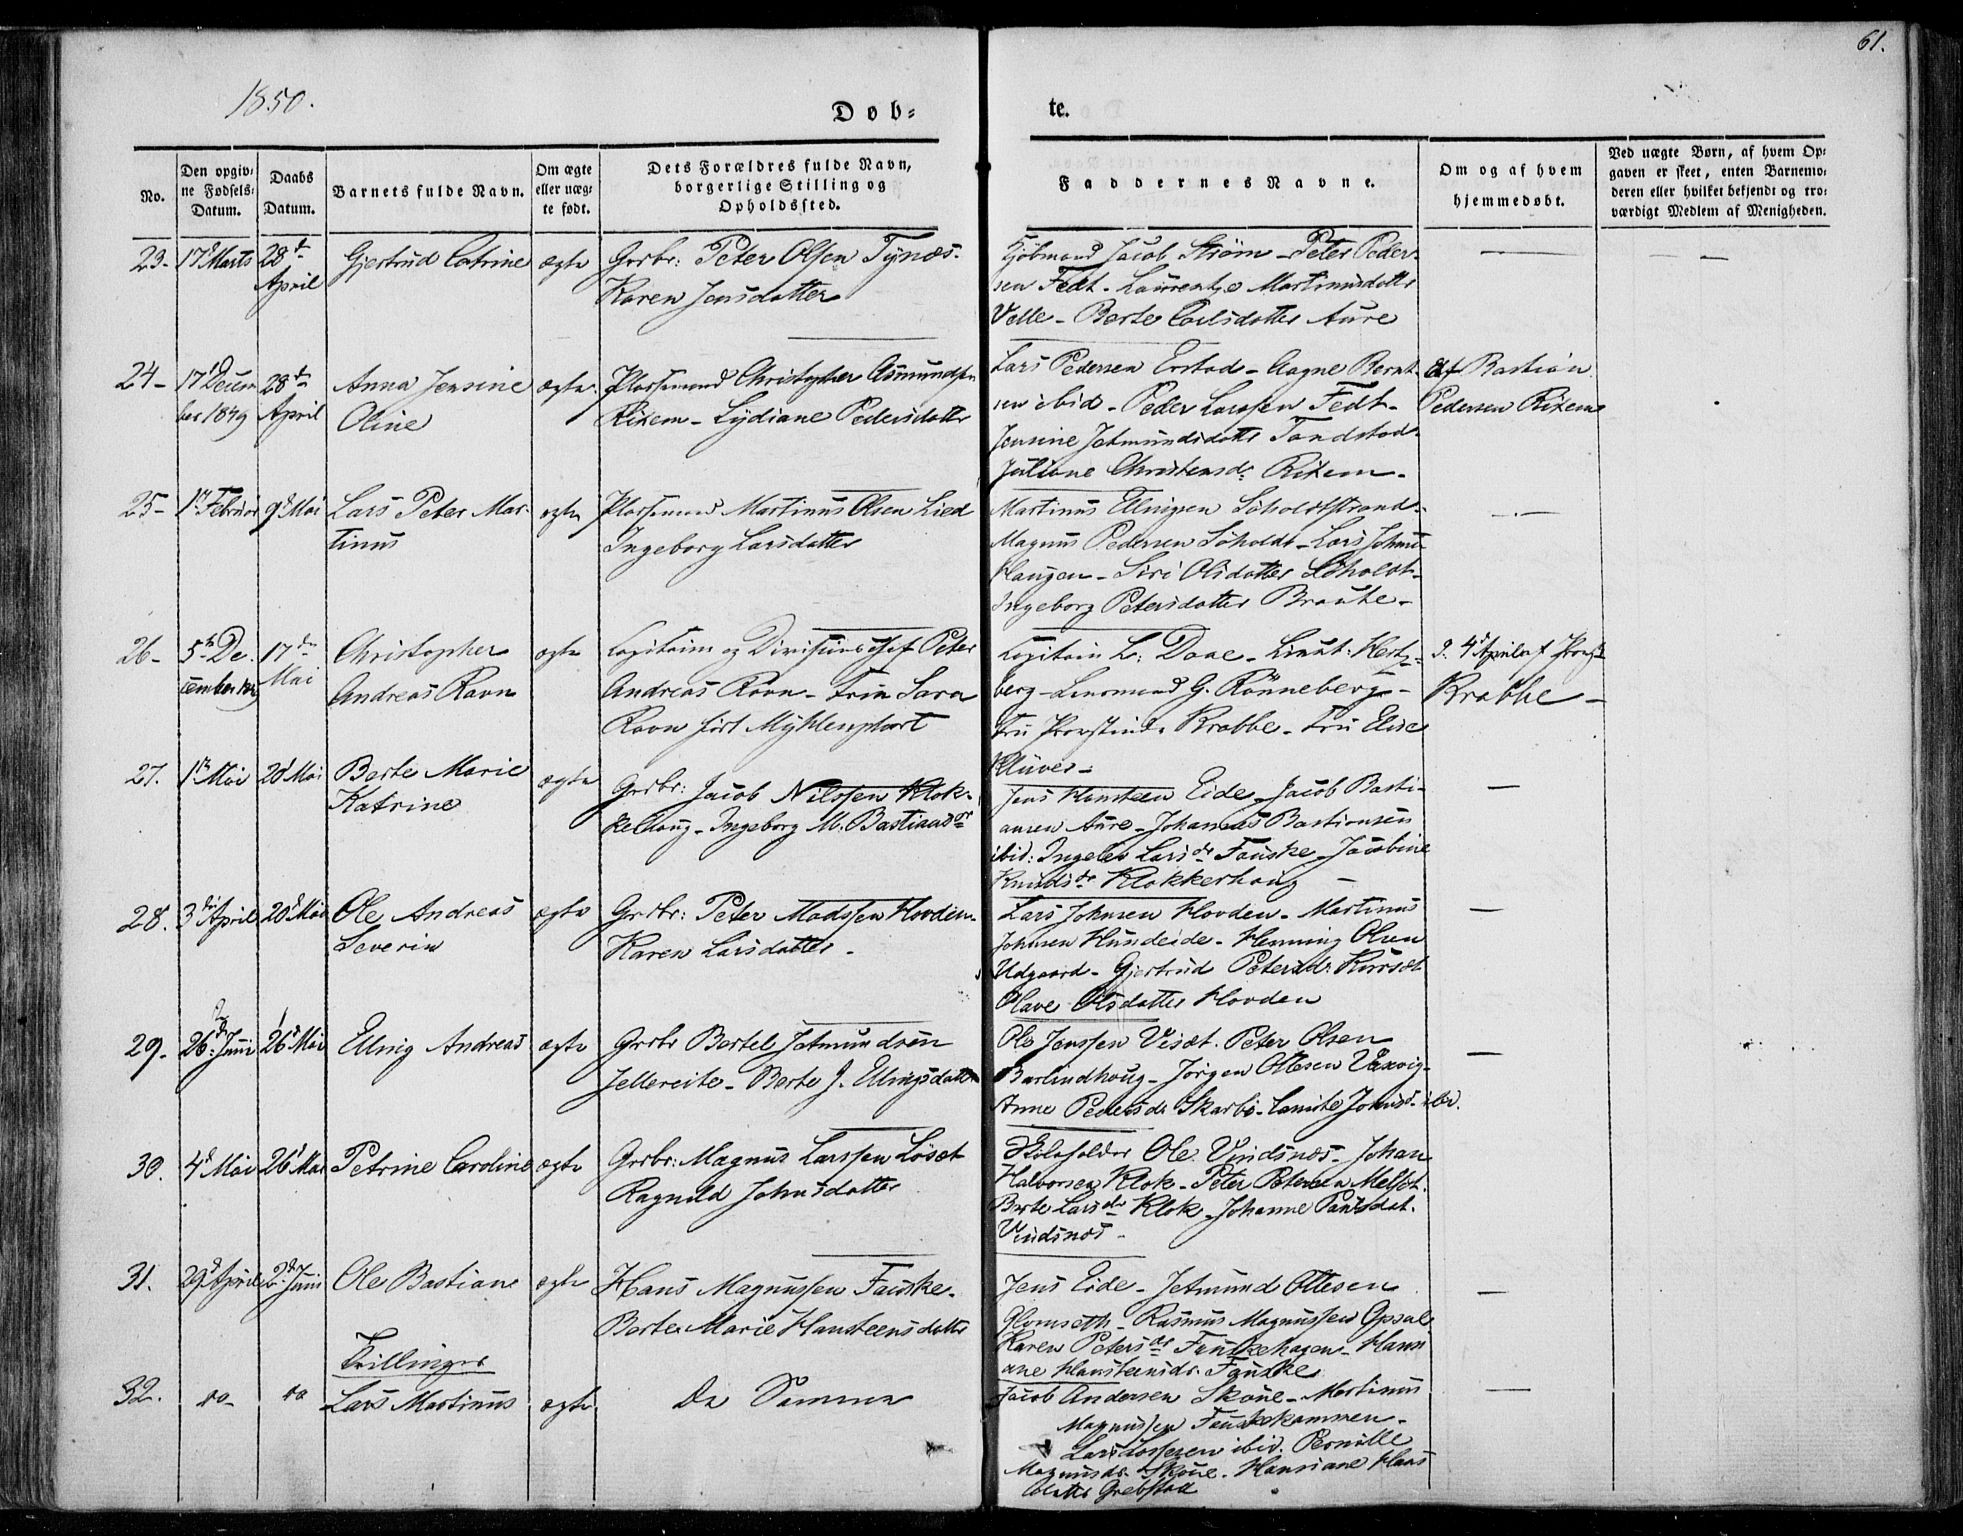 61.
1850.
Døb-
te.
No.
Den opgiv-
ne Fødsels-
Datum.
Daabs
Datum.
Barnets fulde Navn.
Om ægte
eller uæg-
te født.
Dets Forældres fulde Navn,
borgerlige Stilling og
Opholdssted.
Faddernes Navne.
Om og af hvem
hjemmedøbt.
Ved uægte Børn, af hvem Op-
gaven er skeet, enten Barnemo-
deren eller hvilket bekjendt og tro-
værdigt Medlem af Menigheden.
23- 17d Marts 28de April Gjertrud Catrine ægte
Grdbr: Peter Olsen Tynæs-
Karen Jensdatter
Kjøbmand Jacob Strøm - Peter Peder-
sen Fedt - Laurentze Martinusdatter
Velle - Berte Carlsdatter Aure
24- 17d Decem
ber 1849 28de April Anna Jensine
Oline ægte
Pladsemand Christopher Asmundsen
Rixem - Lydiane Pedersdatter
Lars Pedersen Erstad - Aagne Bernt-
sen ibid - Peder Larssen Fedt -
Jensine Jetmundsdatter Tandstad-
Juliane Christensdr Rixem -
Af Bastian
Pedersen Rixem
25- 1ste Februar 9d Mai Lars Peter Mar-
tinus ægte
Pladsemand Martinus Olsen Lied
Ingeborg Larsdatter
Martinus Ellingsen Søholdtstrand-
Magnus Pedersen Søholdt - Lars Johans
Haugen - Siri Olsdatter Søholdt-
Ingeborg Petersdatter Braute -
26- 5te De-
cember 17de Mai Christopher
Andreas Ravn ægte
Capitaim og Divisionschef Peter
Andreas Ravn - Frue Sara
Ravn født Myhlenphort
Capitain L: Daae - Lieut: Hertz-
berg - Lensmand G. Rønneberg -
Fru Provstinde Krabbe - Fru Elise
Klüver -
d. 4d April af Provst
Krabbe -
27. 1ste Mai 20d Mai Berte Marie
Katrine ægte
Grdbr: Jacob Nilssen Klok-
kehoug - Ingeborg M. Bastiansdr
Jens Hansteen Eide - Jacob Basti-
ansen Aure - Johannes Bastiansen
ibid: Ingelev Larsdr Fauske - Jacobine
Knudsdr Klokkerhoug -
28. 3die April 20d Mai Ole Andreas
Severin ægte
Grdbr: Peter Madssen Hovden-
Karen Larsdatter -
Lars Johnsen Hovden - Martinus
Johnsen Hundeide - Henning Olsen
Udgaard - Gjertrud Petersdr Kurset
Olave Olsdatter Hovden
29- 26d Juni 26d Mai Elling Andreas ægte
Grdbr Bertel Jetmundsen
Jellereite - Berte J. Ellingsdatter
Ole Jenssen Viset. Peter Olsen
Barlindhoug - Jørgen Ottesen Vaxvig-
Anne Pedersdr Skarbø - Johnsdr ibd.
30. 4d Mai 26d Mai Petrine Caroline ægte
Grdbr: Magnus Larssen Løset
Ragnild Johnsdatter
Skoleholder Ole Vindsnes - Johan
Halvorsen Klok - Peter Petersen Melset.
Berte Larsdr Klok - Johanne Paulsdat.
Vindsnes -
31. 29d April 2d Juni Ole Bastian ægte
Hans Magnussen Fauske-
Berte Marie Hansteensdatter
Jens Eide - Jetmund Ottesen
Glomseth - Rasmus Magnussen Opsal
Karen Petersdr Fauskehagen - Hans
ane Hansteensdr Fauske
Tvillinger
32. do- do Lars Martinus ægte
De Samme
Jacob Andersen Skoue - Martinus
Magnussen Fauskekammen-
Lars Larssen ibid. Pernille
Magnusdr Skoue - Hansiane Hans
datter Grebstad